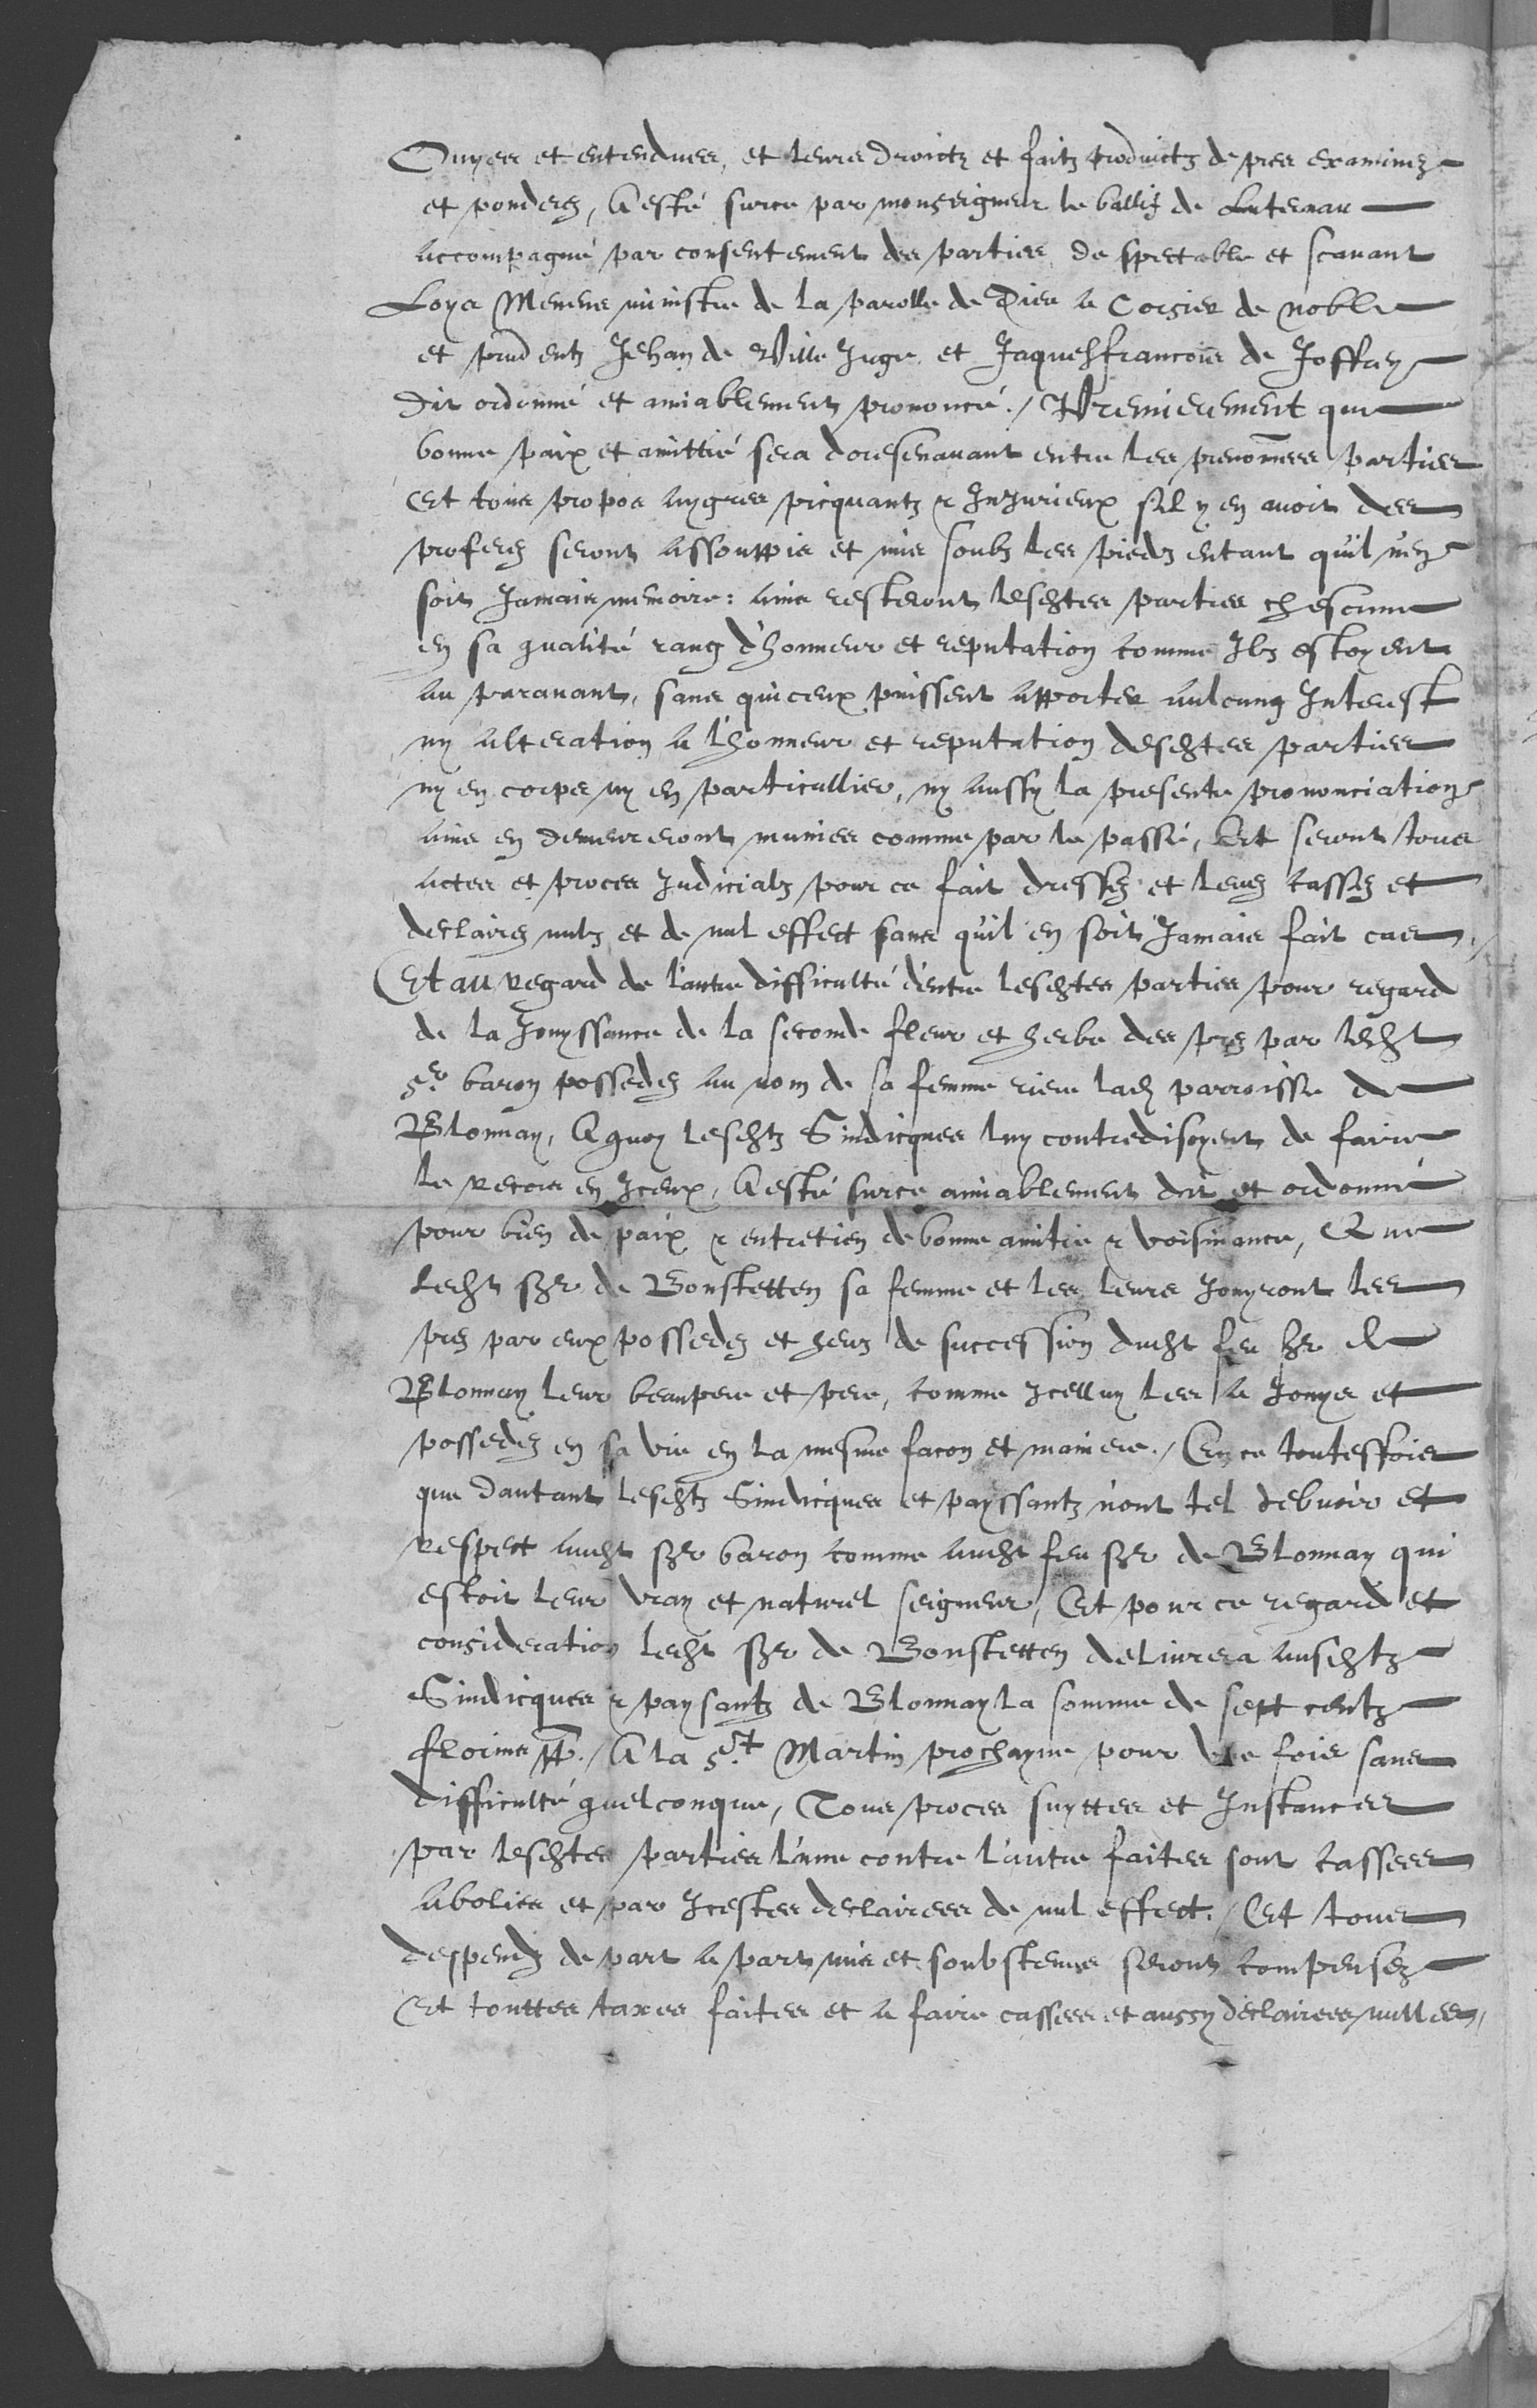 Ouyes et entendues, et leurs droictz et faitz produictz de pres examinez
et ponderez, A esté surce par monseigneur le ballif de Luternau
accompagné par consentement des parties de spectable et scavant
Loys Memens ministre de la parolle de Dieu a Corsier de noble
et prudentz Jehan de Ville Juge et Jaques francois de Joffrey
dit ordonné et amiablement prononcé./ Premierement que
bonne paix et amittié sera doresenavant entre les prenommees parties
Et tous propos aygres picquantz & Injurieux sil y en avoit des
proferez seront assouppis et mis soubz les piedz entant quil n'en
soit Jamais memoire: ains resteront lesdites parties chescune
en sa qualité rang d'honneur et reputation comme Ilz estoyent
au paravant, sans qu'iceux puissent apporter aulcung Interest
ny alteration a l'honneur et reputation desdites parties
ny en corps ny en particullier, ny aussy la presente prononciation
ains en demeureront munies comme par le passé, Et seront tous
actes et proces Judicialz pour ce fait dressez et levez cassez et
declairez nulz et de nul effect sans qu'il en soit Jamais fait cas./
Et au regard de l'autre difficulté d'entre lesdites parties pour regard
de la Jouyssance de la seconde fleur et herbe des prez par ledit
sr baron possedez au nom de sa femme riere lad. parroisse de
Blonnay, A quoy lesditz Sindicques luy contredisoyent de faire
le recors en Iceux, A esté surce amiablement dit et ordonné
pour bien de paix & entretien de bonne amitie & voisinance, Que
Ledit sgr de Bonstetten sa femme et les leurs Jouyront les
prez par eux possedez et heuz de succession dudit feu sgr de
Blonnay leur beaupere et pere, comme Icelluy les a Jouys et
possedez en sa vie en la mesme facon et maniere./ En ce touteffois
que dautant lesditz Sindicques et payssantz n'ont tel debvoir et
respect audit sgr baron comme audit feu sgr de Blonnay qui
estoit leur vray et naturel seigneur, Et pour ce regard et
consideration ledit sgr de Bonstetten delivrera ausditz
Sindicques & paysantz de Blonnay la somme de sept centz
florins pp./ A la St Martin prochayne pour une fois sans
difficulté quelconque, Tous proces suyttes et Instances
par lesdites parties l'une contre l'autre faites sont cassees
abolies et par Icestes declairees de nul effect./ Et tous
despendz de part a part mis et soubstenus seront compensez
Et touttes taxes faites et a faire cassees et aussy declairees nulles,